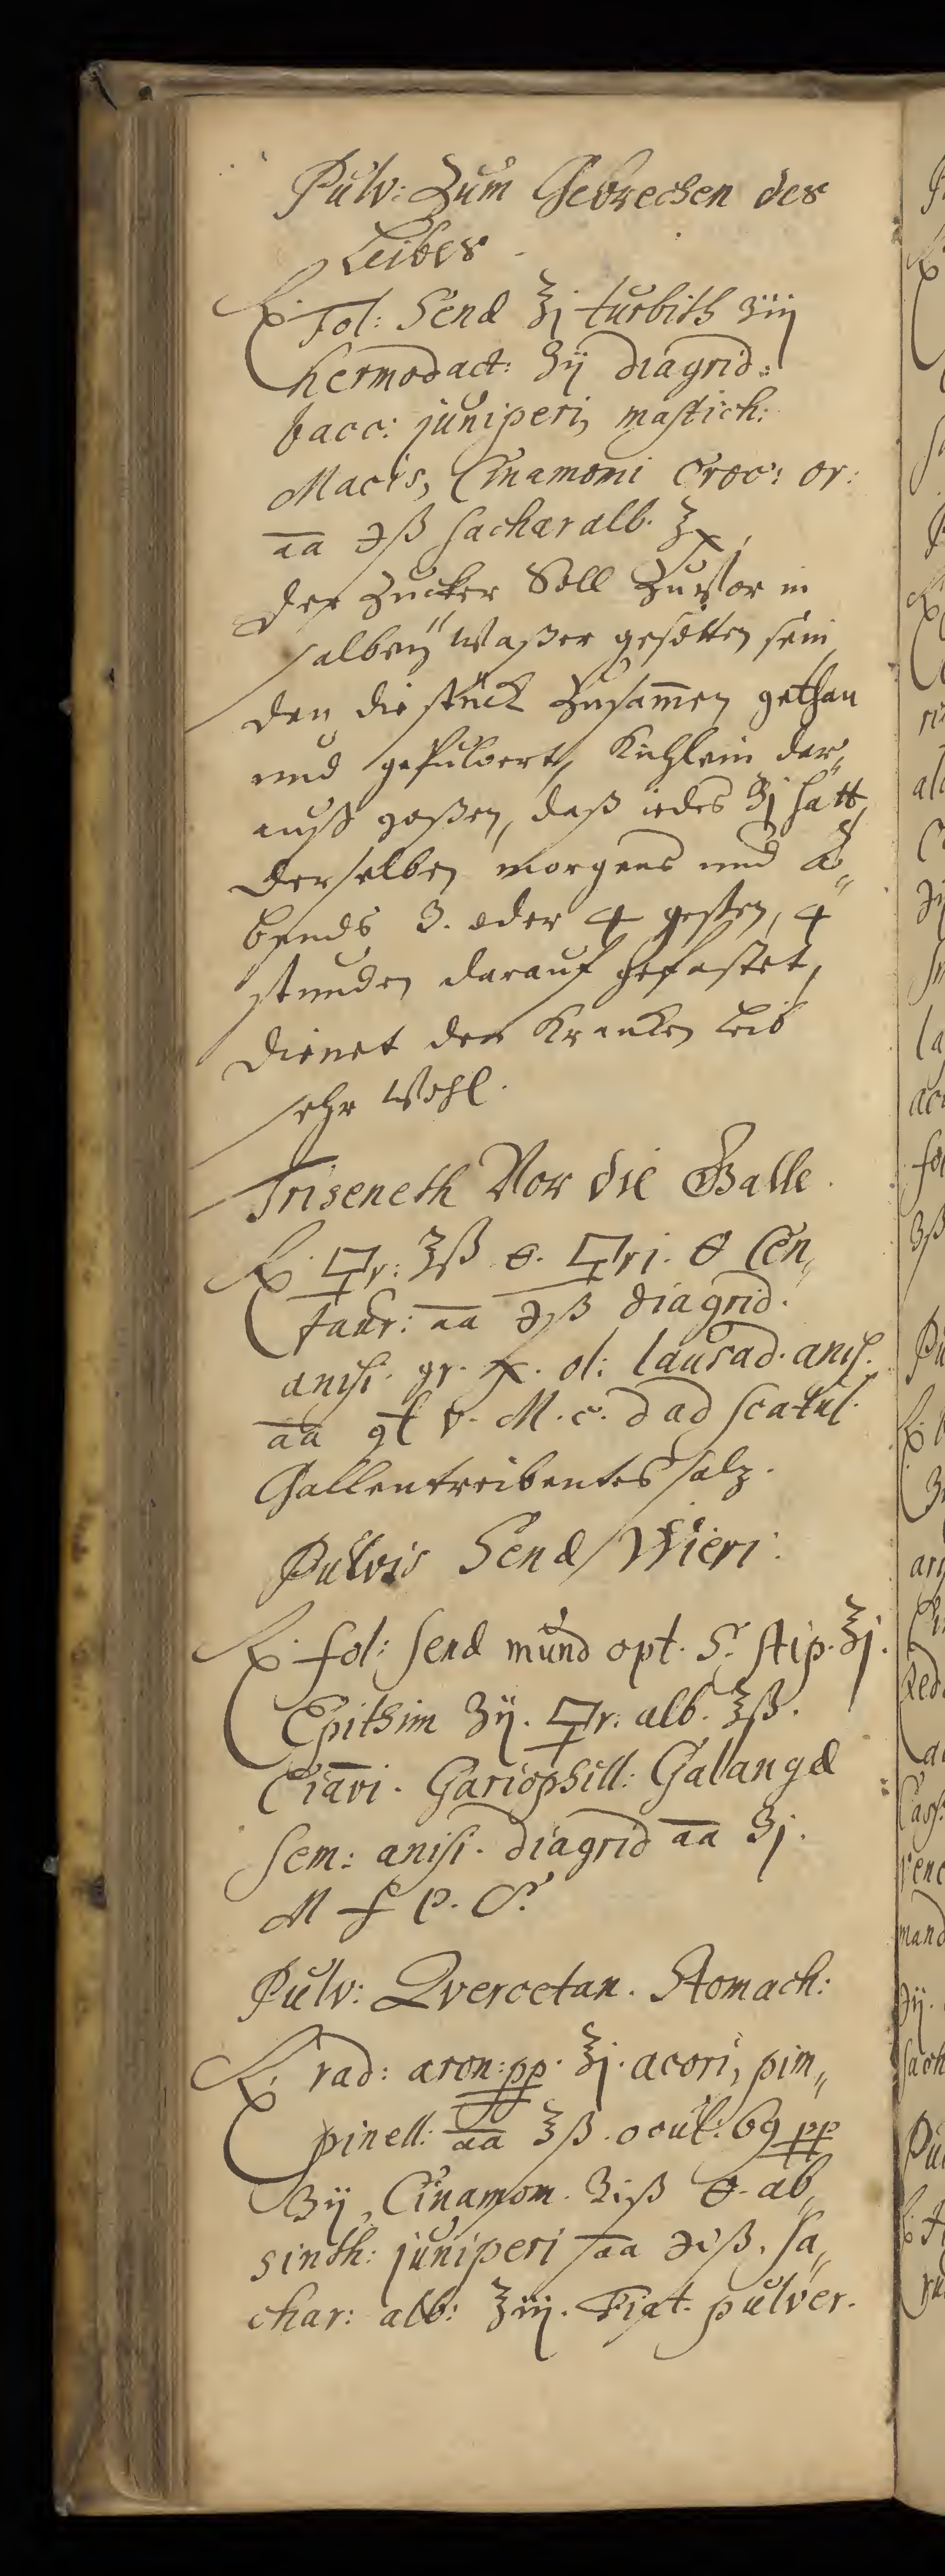 Pulv: Zum Gebrechen des
Leibes
℞. Fol: Senæ ℥j turbith ʒiij
hermodact: ʒij diagrid:
bacc: juniperi, mastich:
Macis, Cinamoni Croc: or:
aa ℈ß sachar alb. ℥x,
der Zucker Soll Zuvor in
salbeÿ Waßer gesotten sein
den die stück Zusam̅en gethan
und gepulvert, Kuchlein dar„
auß goßen, daß iedes ʒj hatt,
derselben morgens und A„
bends 3. oder 4 geßen, 4
stunden darauf gefastet,
dienet den Krancken Leib
sehr Wohl.
Triseneth Vor die Galle.
℞. 🜿r: ℥ß 🜔. 🜿ri. 🜔 Cen„
taur: aa ℈ß diagrid.
anisi. gr. x. ol: laurad. anis.
aa gt v. M. c. d ad scatul.
Gallentreibentes salz.
Pulvis Senæ Wieri.
℞. fol: Senæ mund opt. S. stip. ℥j.
Epithim ʒij. 🜿r: alb. ℥ß.
Ciavi. Gariophill: Galangæ
Sem: anisi. diagrid aa ʒj.
M f P. S.
Pulv: Qvercetan. Stomach:
℞. rad: aron: pp. ℥j. acori, pim„
pinell: aa ℥ß. ocul: 69 pp
ʒij, Cinamom. ʒiß 🜔. ab„
sinth: juniperi aa ℈iß. Sa„
char: alb: ℥iij. Fiat. pulver.